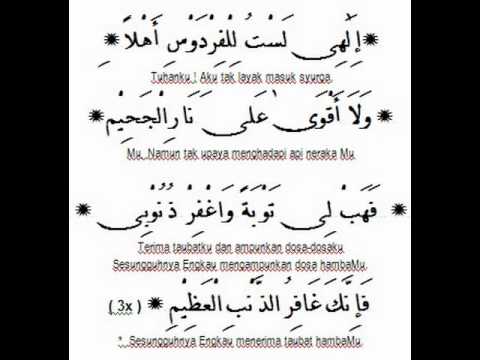 ✷ إِلَهِى لَسْتُ لِلْفِرْدَوْسِ أَهْلاً ✷
Tuhanku ! Aku tak layak masuk syurga.
✷ وَلَا أَقْوَى عَلَى نَارِ الْجَحِيْمِ ✷
Mu. Namun tak upaya menghadapi api neraka Mu
✷ فَهَبْ لِى تَوْبَةً وَاغْفِرْ ذُنُوْبِى ✷
Terima taubatku dan ampunkan dosa-dosaku
Sesungguhnya Engkau mengampunkan dosa hambaMu.
فَإِنَّكَ غَافِرُ الذَّنْبِ الْعَظِيْمِ ✷ ( 3x )
* Sesungguhnya Engkau menerima taubat hambaMu